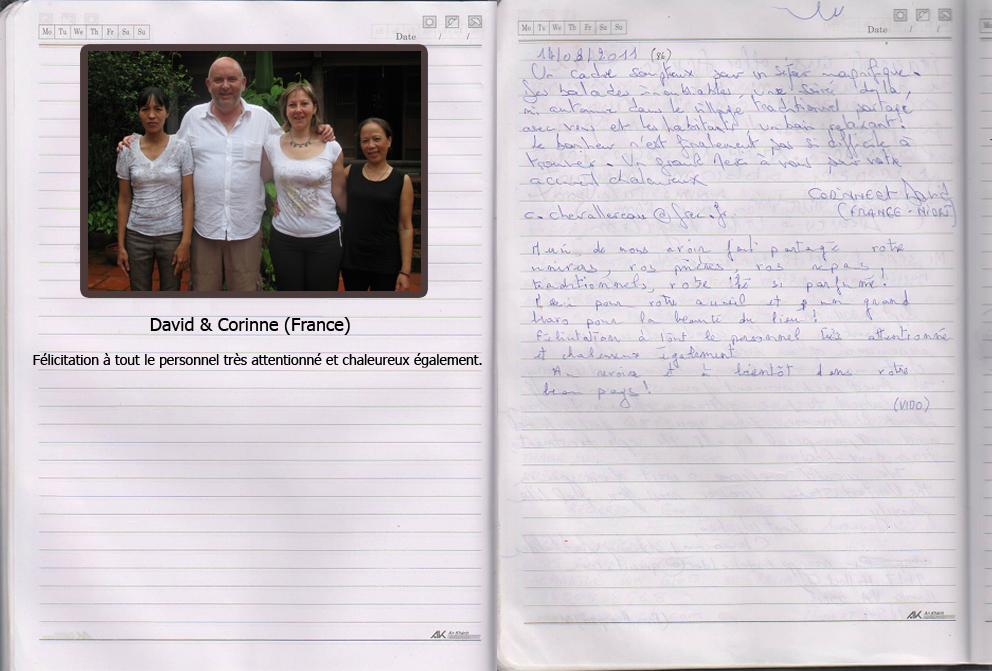 Mo Tu We Th Fr Sa Su
Date / /
David & Corinne (France)
Félicitation à tout le personnel très attentionné et chaleureux également.
AK An Khánh
Mo Tu We Th Fr Sa Su
Date / /
14/08/2011 (86)
Un cadre somptueux pour un séjour magnifique.
Des balades inoubliables, une
dans le village traditionnel partagé
avec vous et les habitants un bain relaxant.
Le bonheur n'est finalement pas si difficile à
trouver. Un grand Merci à vous pour votre
accueil chaleureux
CORINNE et David
c.chevallereau@free.fr (FRANCE - NIORT)
Merci de nous avoir fait partagé votre
univers, vos prières, vos repas
traditionnels, votre thé si parfumé!
Merci pour votre accueil et un grand
bravo pour la beauté du lieu!
Félicitation à tout le personnel très attentionné
et chaleureux également.
Au revoir et à bientôt dans votre
beau pays!
(VIDO)
AK An Khánh